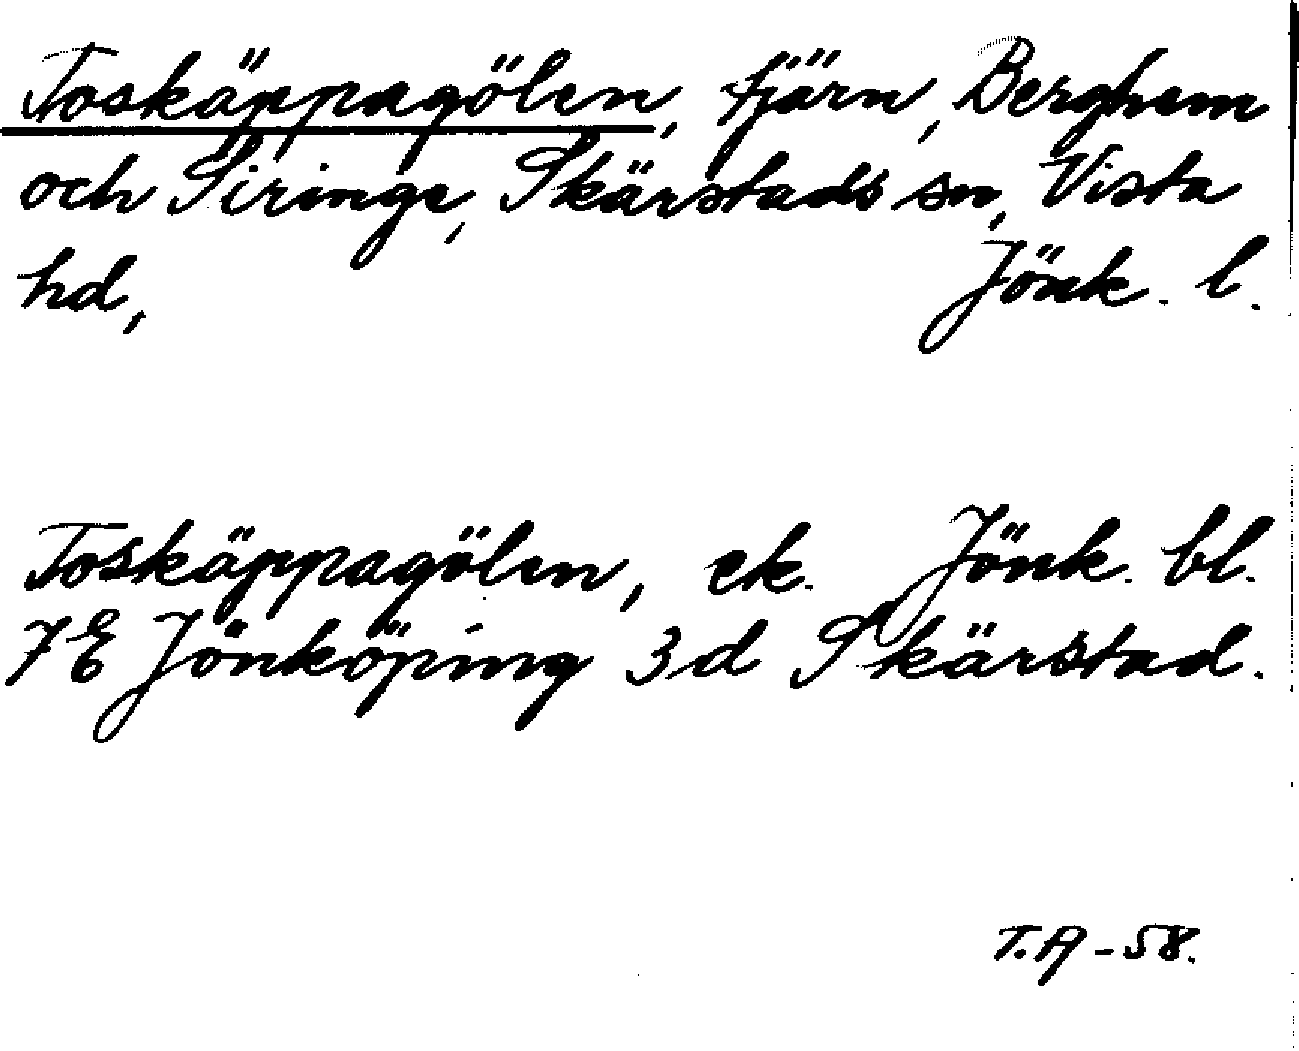 Toskäppagölen, tjärn, Berghem
och Siringe, Skärstads sn, Vista
hd, Jönk. l.
Toskäppagölen, ek. Jönk. bl.
7E Jönköping 3d Skärstad.
T.A -58.